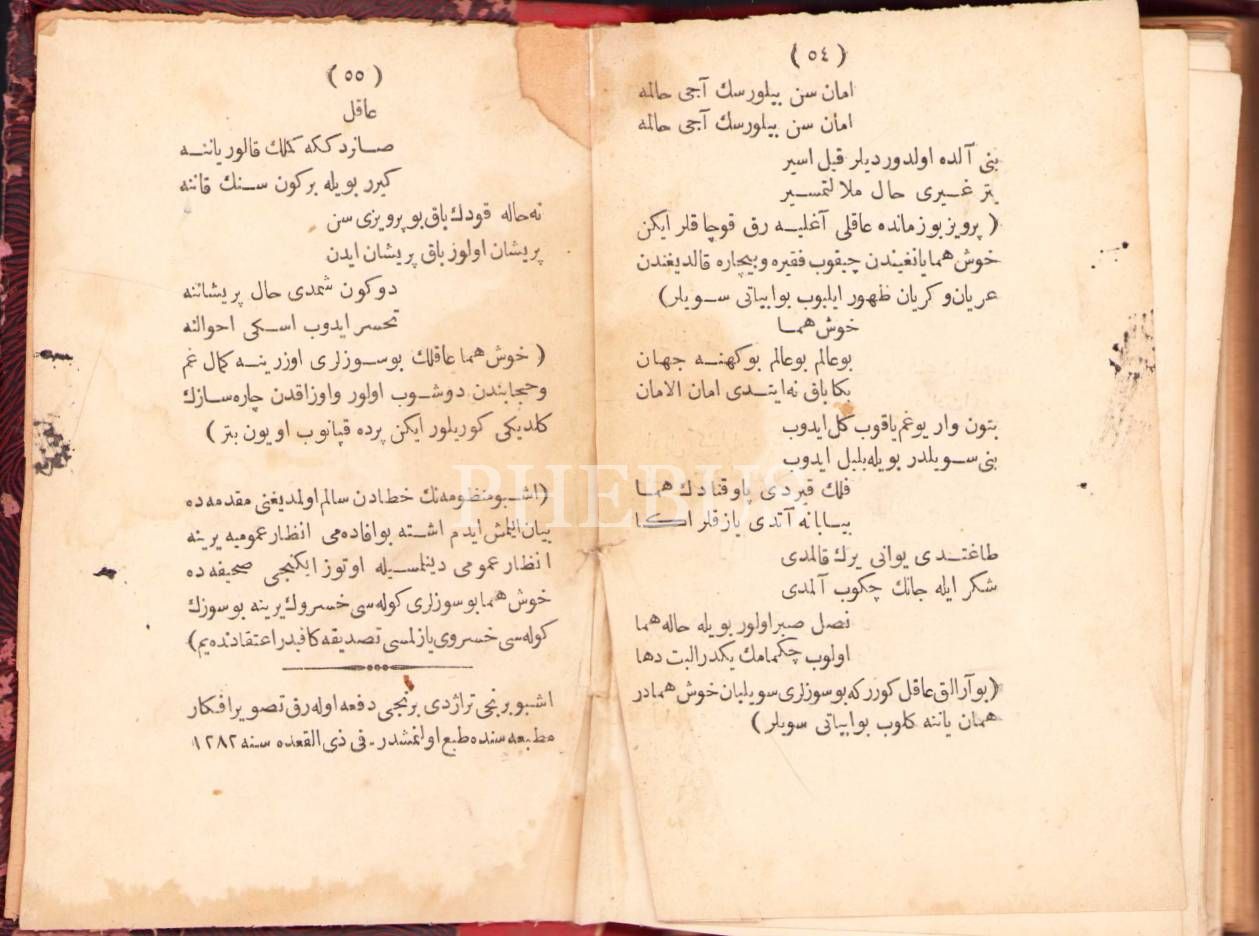 ( ٥٤ )
امان سن بیلورسك آجی حالمه
امان سن بیلورسك آجی حالمه
بنی آلده اولدوردیلر قیل اسیر
یتر غیری حال ملالتمسیر
( پرویز بوزمانده عاقلی آغلیه رق قوچاقلر ایکن
خوش هما یانغیندن چیقوب فقیره و بیچاره قالدیغندن
عریان و کریان ظهور ایلیوب بو ابیاتی سویلر)
خوش هما
بو عالم بو عالم بو کهنه جهان
بکا باق نه ایتدی امان الامان
بتون وار یوغم یاقوب کل ایدوب
بنی سویلدر بویله بلبل ایدوب
فلك قیردی پا وقنادك هما
بیابانه آتدی یازقلر اکا
طاغتدی یوانی یرك قالمدی
شکر ایله جانك چکوب آلمدی
نصل صبر اولور بویله حاله هما
اولوب چکمامك یکدر البت دها
( بو آرالق عاقل کورر که بو سوزلری سویلیان خوش همادر
همان یاننه کلوب بو ابیاتی سویلر )
( ٥٥ )
عاقل
قالور یاننه
کیرر بویله برکون سنك قاننه
نه حاله قودك باق بو پرویزی سن
پریشان اولوز باق پریشان ایدن
دوکون شمدی حال پریشاننه
تحسر ایدوب اسکی احوالنه
( خوش هما عاقلك بو سوزلری اوزرینه کمال غم
وحجابندن دوشوب اولور واوزاقدن چاره سازك
کلدیکی کوریلور ایکن پرده قپانوب اویون بتر )
PHEBUS
(اشبو منظومه نك خطادن سالم اولمدیغنی مقدمه ده
بیان ایلمش ایدم اشته بو افاده می انظار عمومیه یرینه
انظار عمومی دینلمسیله اوتوز ایکنجی صحیفه ده
خوش هما بو سوزلری کوله سی خسروك یرینه بو سوزك
کوله سی خسروی یازلمسی تصدیقه کافیدر اعتقادنده یم)
اشبو برنجی تراژدی برنجی دفعه اوله رق تصویر افکار
مطبعه سنده طبع اولنمشدر ـ فی ذی القعده سنه ١٢٨٢